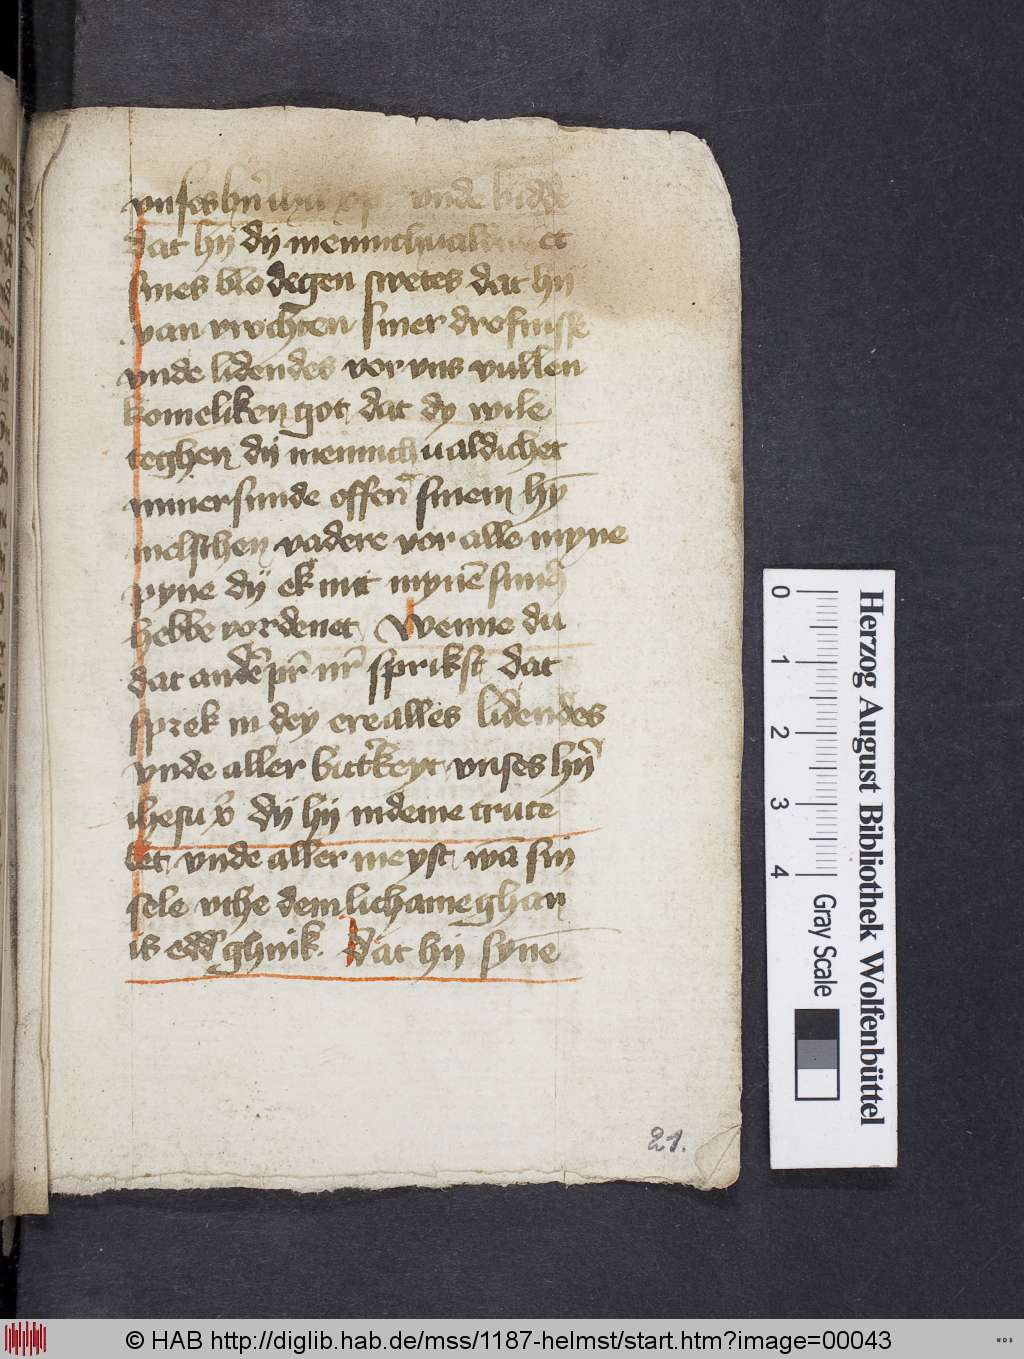 vnses hn̄ ihu xp̄ vnde bidde
dat hij dij mennichualdichet
sines blodegen swetes dat hij
van vrochten siner drofnisse
vnde lidendes vor vns vullen
komeliken got dat dy wile
teghen dij mennichualdichet
miner sunde offen̄ sinem hȳ
melschen vadere vor alle myne
pyne dij ek mit mynē sund̄
hebbe vordenet Wenne du
dat ander pr̄ nr̄ sprikst dat
sprek in dey ere alles lidendes
vnde aller bitt̄keyt vnses hn̄
ihesu x̄ dij hij in deme cruce
let vnde aller meyst wā sin
sele vthe dem lichame ghan
is edd̄ ghink. dat hij synē
21.
Herzog August Bibliothek Wolfenbüttel
0 1 2 3 4 Gray Scale
© HAB http://diglib.hab.de/mss/1187-helmst/start.htm?image=00043